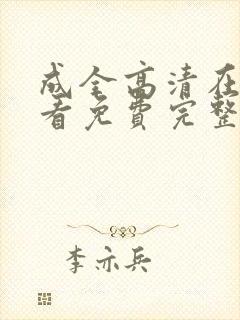 成全高清在
看免费完整
李亦兵